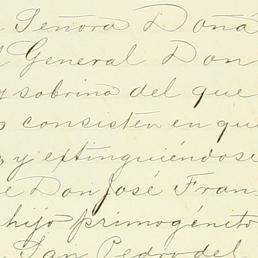 Señora Doña
General Don
y sobrina del que
consisten en que
y extinguiéndose
e Don José Fran
hijo primogénito
San Pedro del